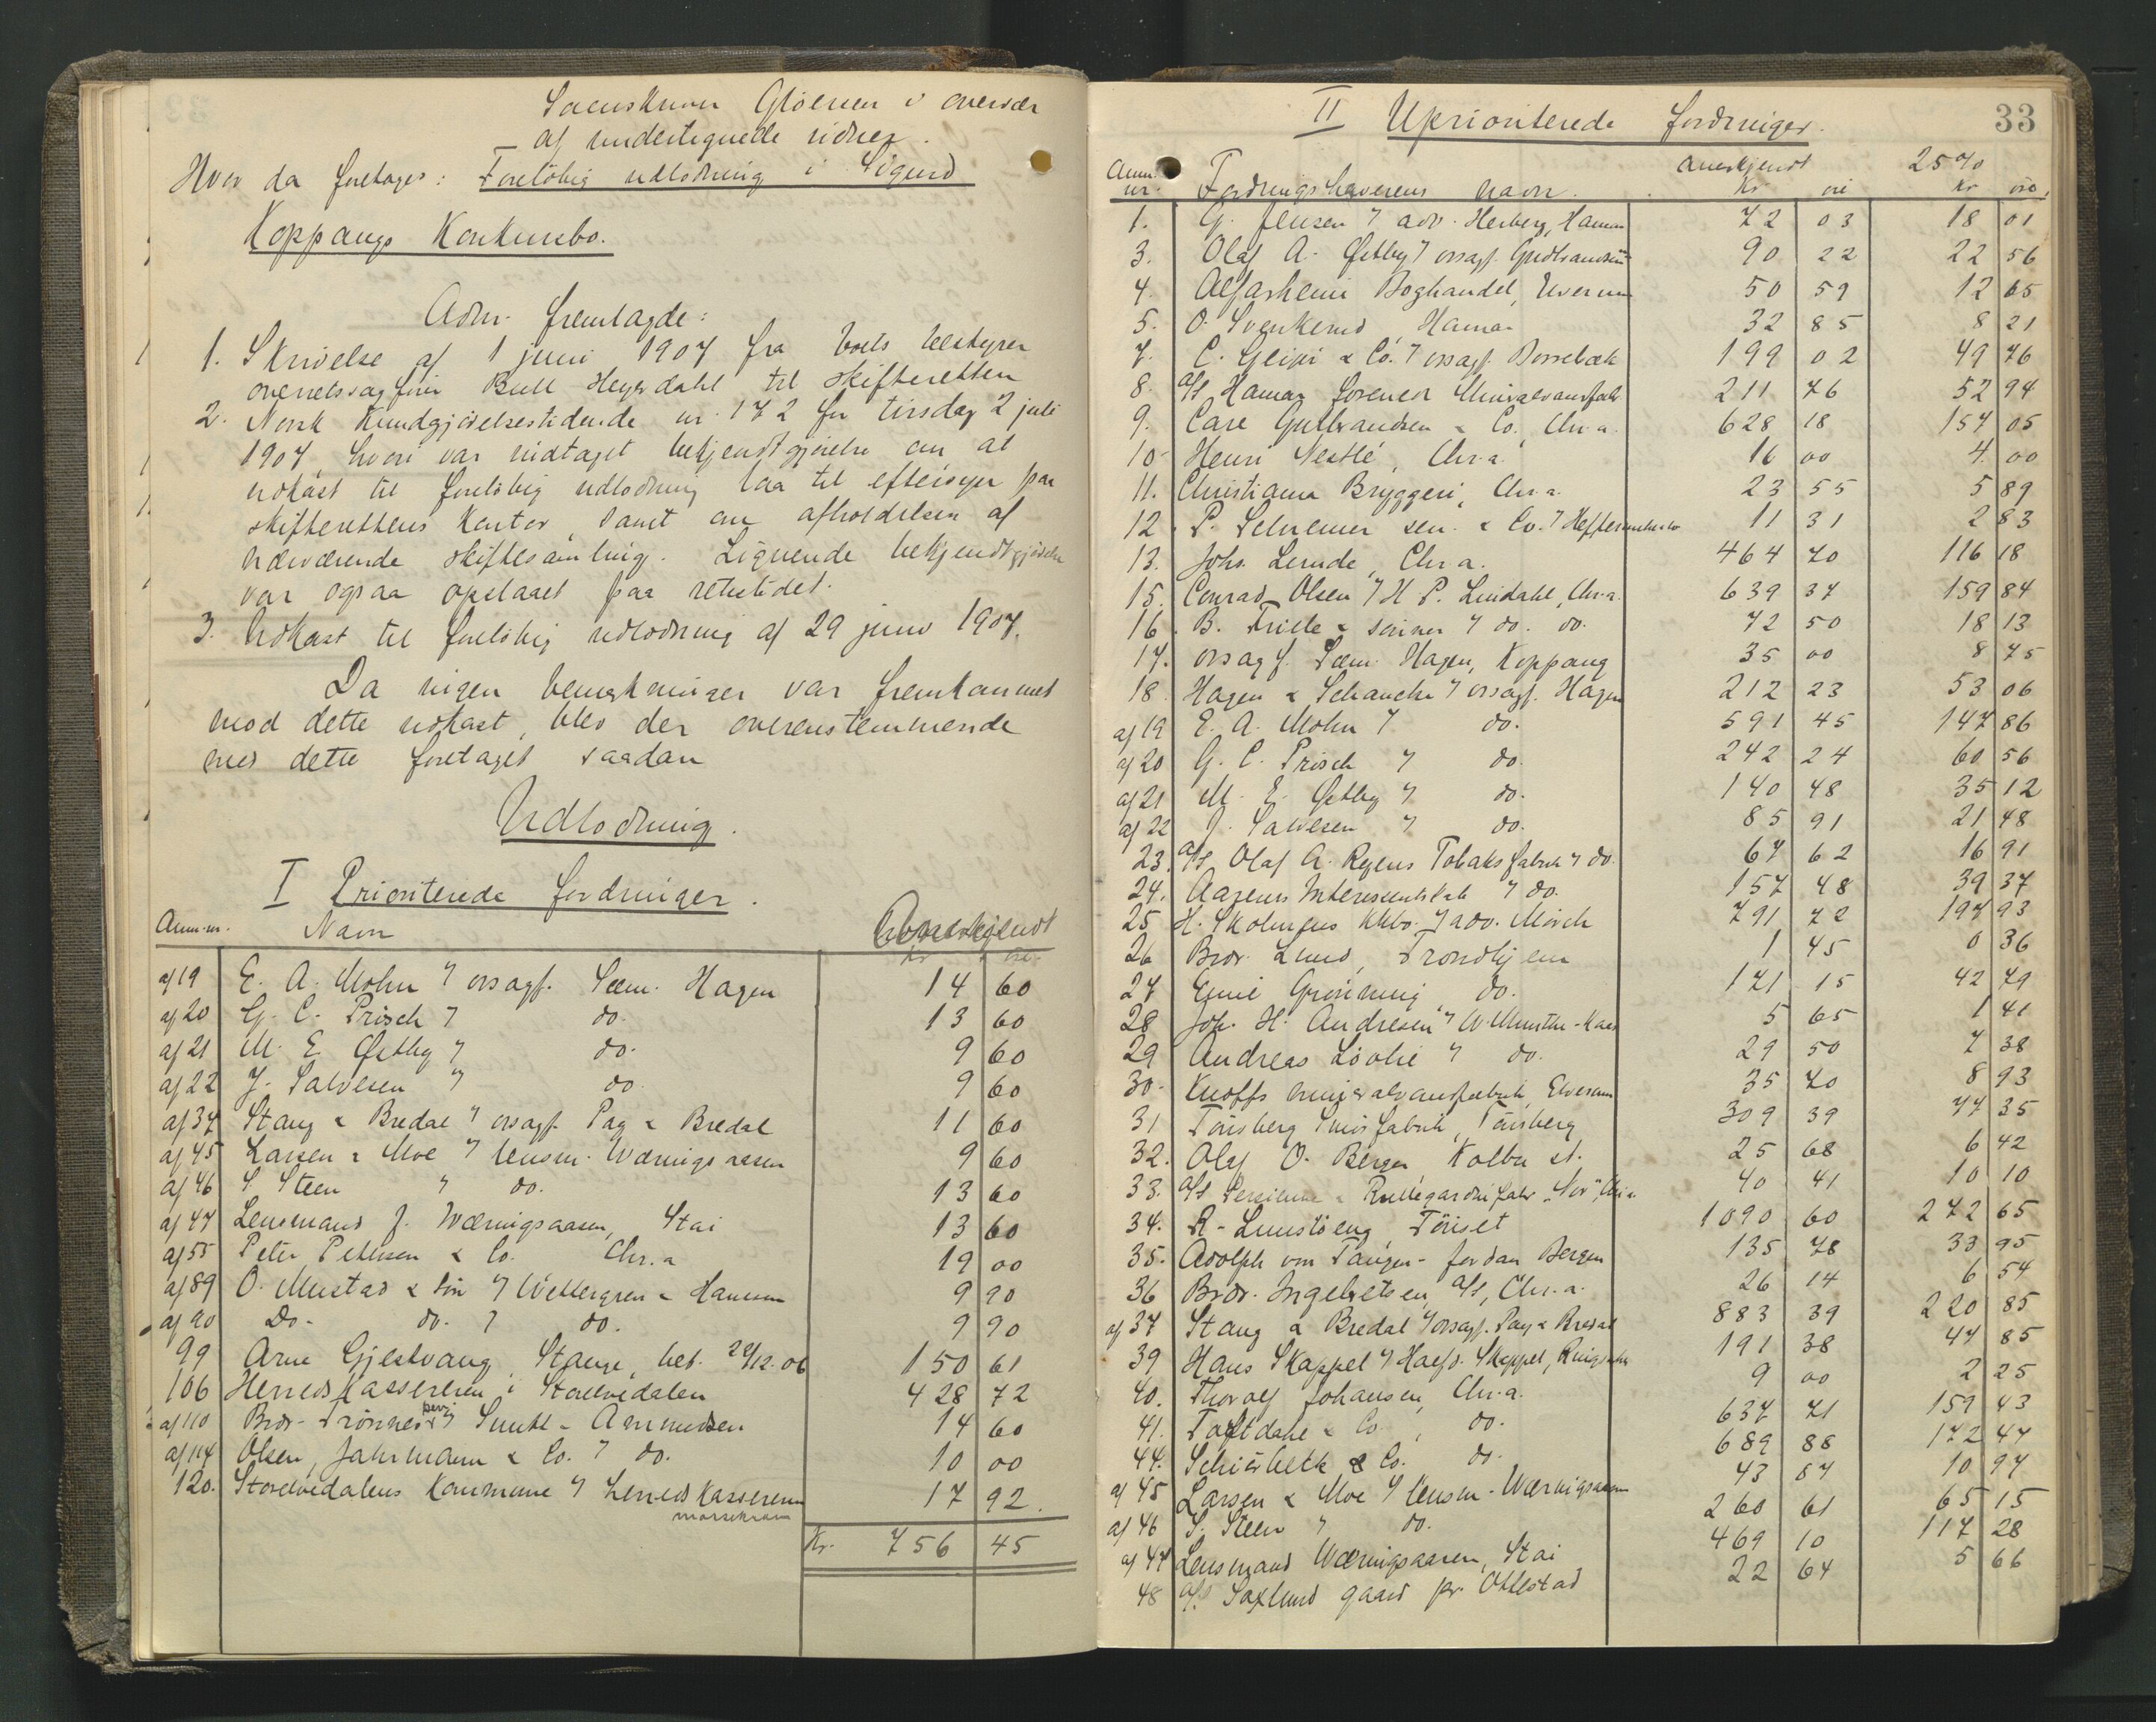 Gløersen i overvær
af undertegnede vidner.
Hvor da foretoges: Foreløbig udlodning i Sigurd
Koppangs Konkursbo.
Adm. fremlagde:
1. Skrivelse af 1 juni 1907 fra boets bestyrer
overretssagfører Bull Heyerdahl til skifteretten
2. Norsk Kundgjørelsestidende nr. 172 for tirsdag 2 juli
1907, hvori var indtaget bekjendtgjørelse om at
udkast til foreløbig udlodning laa til eftersyn paa
skifterettens kontor, samt om afholdelsen af
nærværende skiftesamling. Lignende bekjendtgjørelse
var ogsaa opslaaet paa retsstedet.
3. Udkast til foreløbig udlodning af 29 juni 1907.
Da ingen bemerkninger var fremkommet
mod dette udkast, blev der overenstemmende
med dette foretaget saadan
Udlodning.
I Prioriterede fordringer.
Anm. nr. Navn Anerkjendt
Kr. øre.
af 19 E. A. Mohn v/ orsagf. Sæm. Hagen 14 60
af 20 G. C. Prisch v/ do. 13 60
af 21 M. E. Østby v/ do. 9 60
af 22 J. Salvesen v/ do 9 60
af 37 Stang & Bredal v/ orsagf. Pay & Bredal 11 60
af 45 Larsen & Moe v/ lensm. Wærnigsaasen 9 60
af 46 S. Steen v/ do. 13 60
af 47 Lensmand J. Wærnigsaasen, Stai 13 60
af 55 Peter Petersen & Co. Chr.a 19 00
af 89 O. Mustad & Søn v/ Wettergren & Hansson 9 90
af 90 Do. do. v/ do. 9 90
99 Arne Gjestvang, Stange, bet. 29/12. 06 150 61
106 Herredskassereren i Storelvedalen 428 72
af 110 Brdr. Trønnes v/ Smith & Amundsen 14 60
af 114 Olsen, Jahrmann & Co. v/ do. 10 00
120. Storelvedalens Kommune v/ herredskassereren 17 92.
Kr. 756 45
33
II Uprioriterede fordringer.
Anm. nr. Fordringshaverens navn. Anerkjendt Kr øre 25 % Kr øre.
1. G. Jensen v/ adv. Herberg, Hamar 72 03 18 01
3. Olaf A. Østby v/ orsagf. Gudbrandsen 90 22 22 56
4. Alfarheim Boghandel, Elverum 50 59 12 65
5. O. Svenkerud, Hamar 32 85 8 21
7. C. Geijer & Co. v/ orsagf. Borrebæk 199 02 49 76
8. A/S Hamar forened Mineralvandfabr 211 76 52 94
9. Carl Gulbrandsen & Co., Chr.a. 628 18 157 05
10 Henri Nestlé, Chr.a. 16 00 4 00
11. Christiania Bryggeri, Chr.a. 23 55 5 89
12. P. Schreiner sen. & Co. v/ 11 31 2 83
13. Johs. Lerude, Chr a. 464 70 116 18
15. Conrad Olsen v/ H. P. Lindahl, Chr.a. 639 37 159 84
16. B. Friele & sønner v/ do. do. 72 50 18 13
17. orsagf. Sæm. Hagen, Koppang 35 00 8 75
18. Hagen & Schanche v/ orsagf. Hagen 212 23 53 06
af 19 E. A. Mohn v/ do. 591 45 147 86
af 20 G. C. Prisch v/ do. 242 24 60 56
af 21 M. E. Østby v/ do. 140 48 35 12
af 22 J. Salvesen v/ do. 85 91 21 48
23. A/S Olaf A. Ryens Tobaksfabrik v/ do. 67 62 16 91
24. Aagens Interessentskab v/ do. 157 48 39 37
25 H. Skolmens kkbo. v/ adv. Mørch 791 72 197 93
26 Brdr. Lund, Trondhjem 1 45 0 36
27 Emil Grønning, do. 171 15 42 79
28 Joh. H. Andresen v/ W. Munthe-Kaas 5 65 1 41
29 Andreas Løvlie v/ do. 29 50 7 38
30. Knoffs mineralvandfabrik, Elverum 35 70 8 93
31 Tønsberg Smørfabrik, Tønsberg 309 39 77 35
32. Olaf O. Berger, Kolbu st. 25 68 6 42
33. A/S Persienne & Rullegardinfabr. "Nor", Chr.a 40 41 10 10
34. R. Lunstöeng, Tønset 1090 60 272 65
35. Adolph von Tangen-Jordan Bergen 135 78 33 95
36 Brdr. Ingebretsen A/S, Chr.a. 26 14 6 54
af 37 Stang & Bredal v/ orsagf. Pay & Bredal 883 39 220 85
39 Hans Skappel v/ Haafd. Skappel, 191 38 47 85
40. Thoralf Johansen, Chr.a. 9 00 2 25
41. Taftdahl & Co., do. 637 71 159 43
44. Schiørbeck & Co. do. 689 88 172 47
af 45 Larsen & Moe v/ lensm. Wærnigsaasen 43 87 10 97
af 46 S. Steen v/ do. 260 61 65 15
af 47 Lensmand Wærnigsaasen, Stai 469 10 117 28
48 A/S Saxlund gaard pr. Ottestad 22 64 5 66